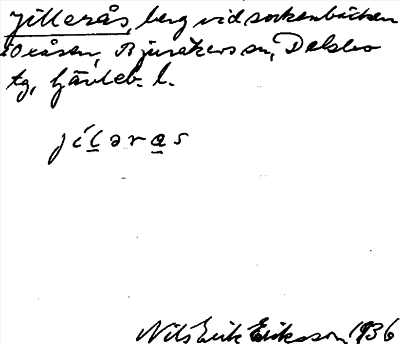 Jillerås, berg vid sockenbäcken
Oxåsen, Bjuråkers sn, Delsbo
tg, Gävleb. l.
jílərɑs
Nils Erik Eriksson 1936